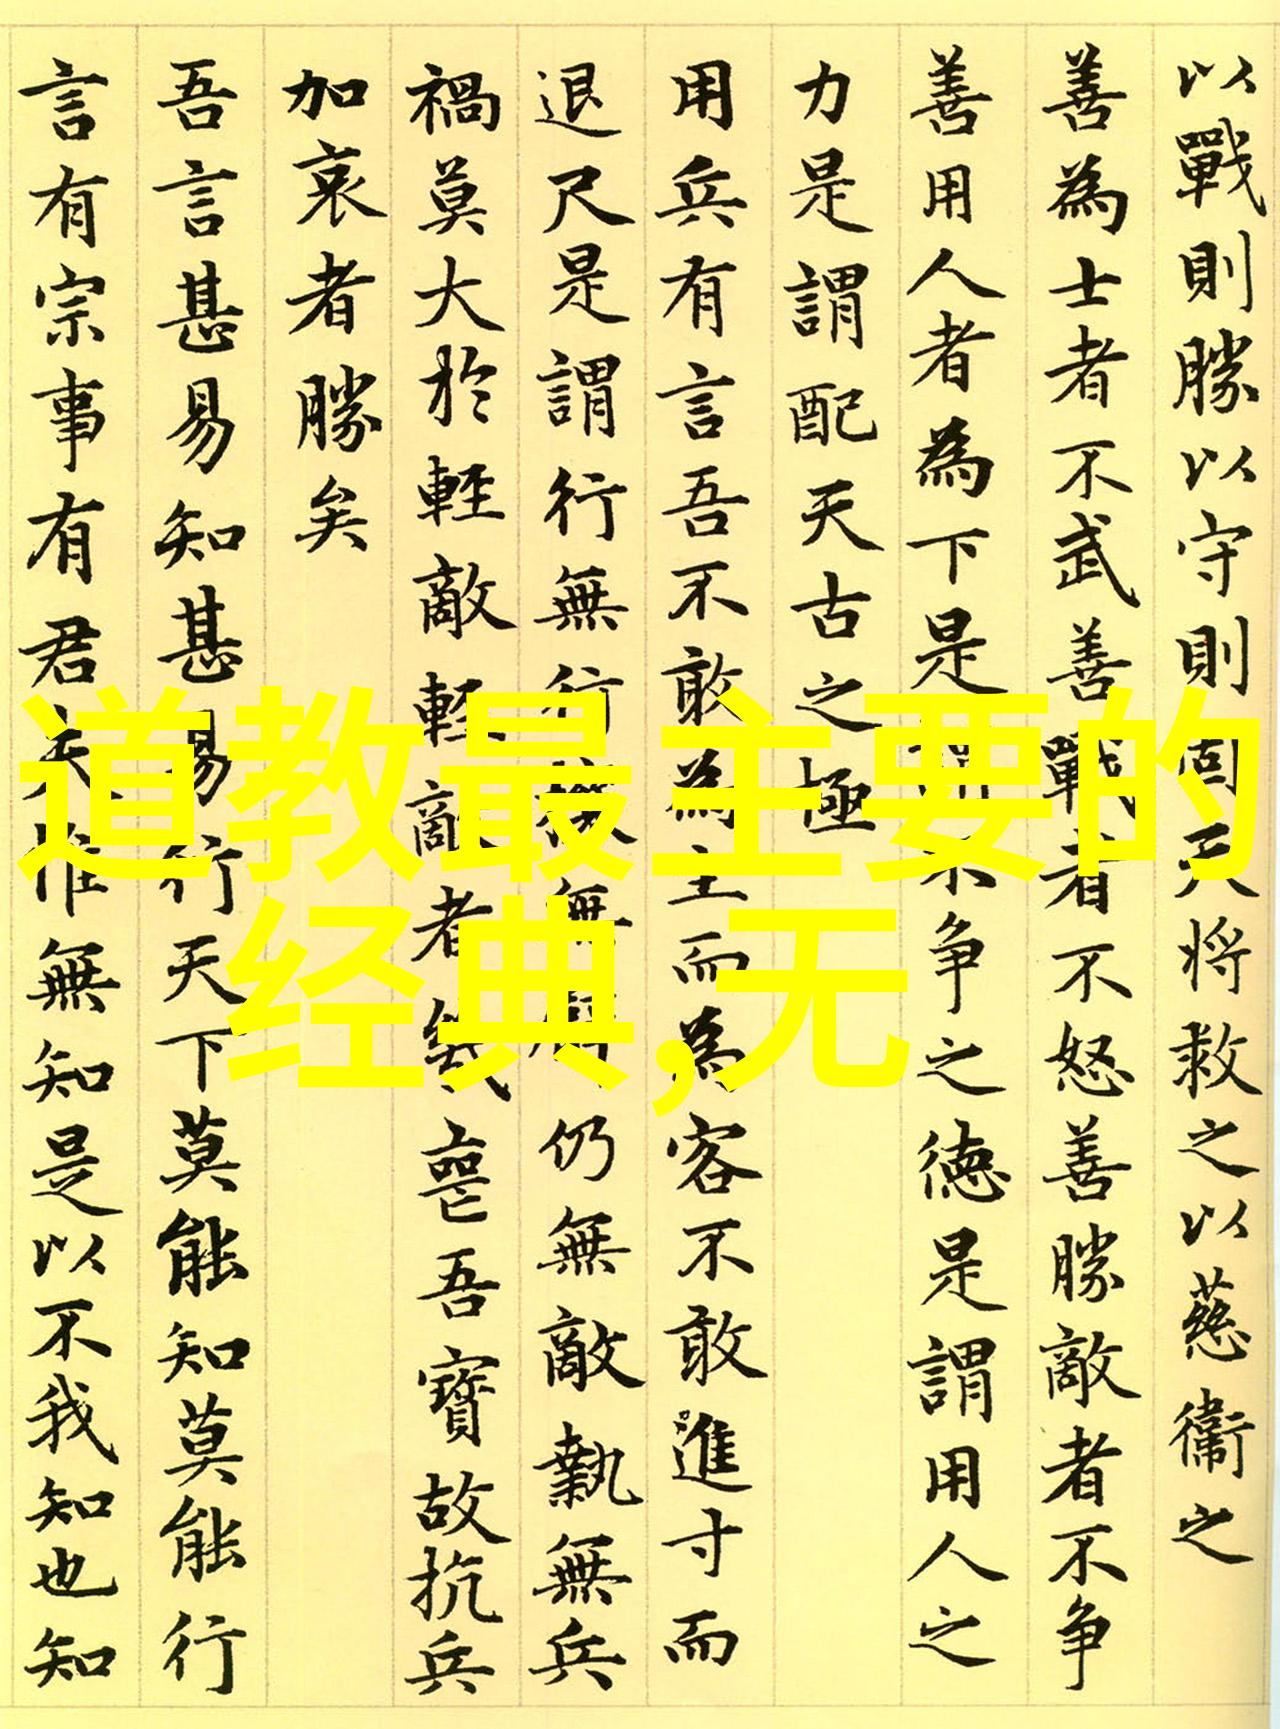 以戰則勝以守則固天將救之以慈衛之
善為士者不武善戰者不怒善勝敵者不争
善用人者為下是謂不争之德是謂用人之
力是謂配天古之極
用兵有言吾不敢為主而為客不敢進寸而
退尺是謂行無行攘無臂仍無敵執無兵
禍莫大於輕敵輕敵者幾喪吾寶故抗兵
加哀者勝矣
吾言甚易知甚易行天下莫能知莫能行
言有宗事有君夫惟無知是以不我知也知
道教最主要的
经典,无